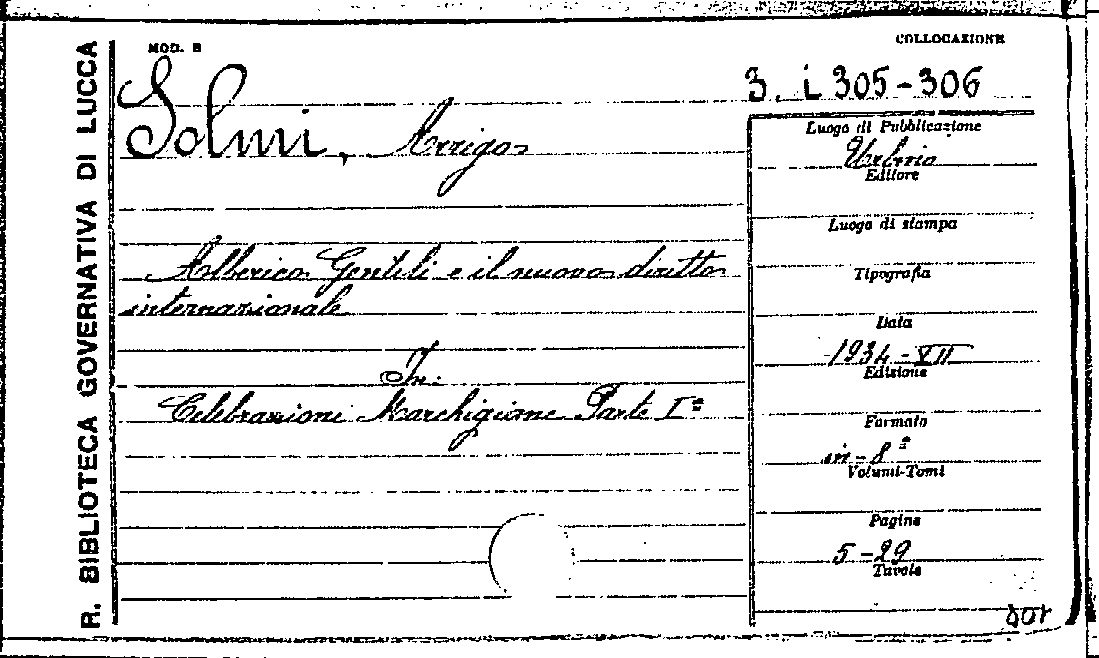 R. BIBLIOTECA GOVERNATIVA DI LUCCA
MOD. B
COLLOCAZIONE
3. i 305-306
Solmi, Arrigo
Alberico Gentili e il nuovo diritto
internazionale
In:
Celebrazioni Marchigiane Parte Iª
Luogo di Pubblicazione
Urbino
Editore
Luogo di stampa
Tipografia
Data
1934-XII
Edizione
Formato
in-8°
Volumi-Tomi
Pagine
5-29
Tavole